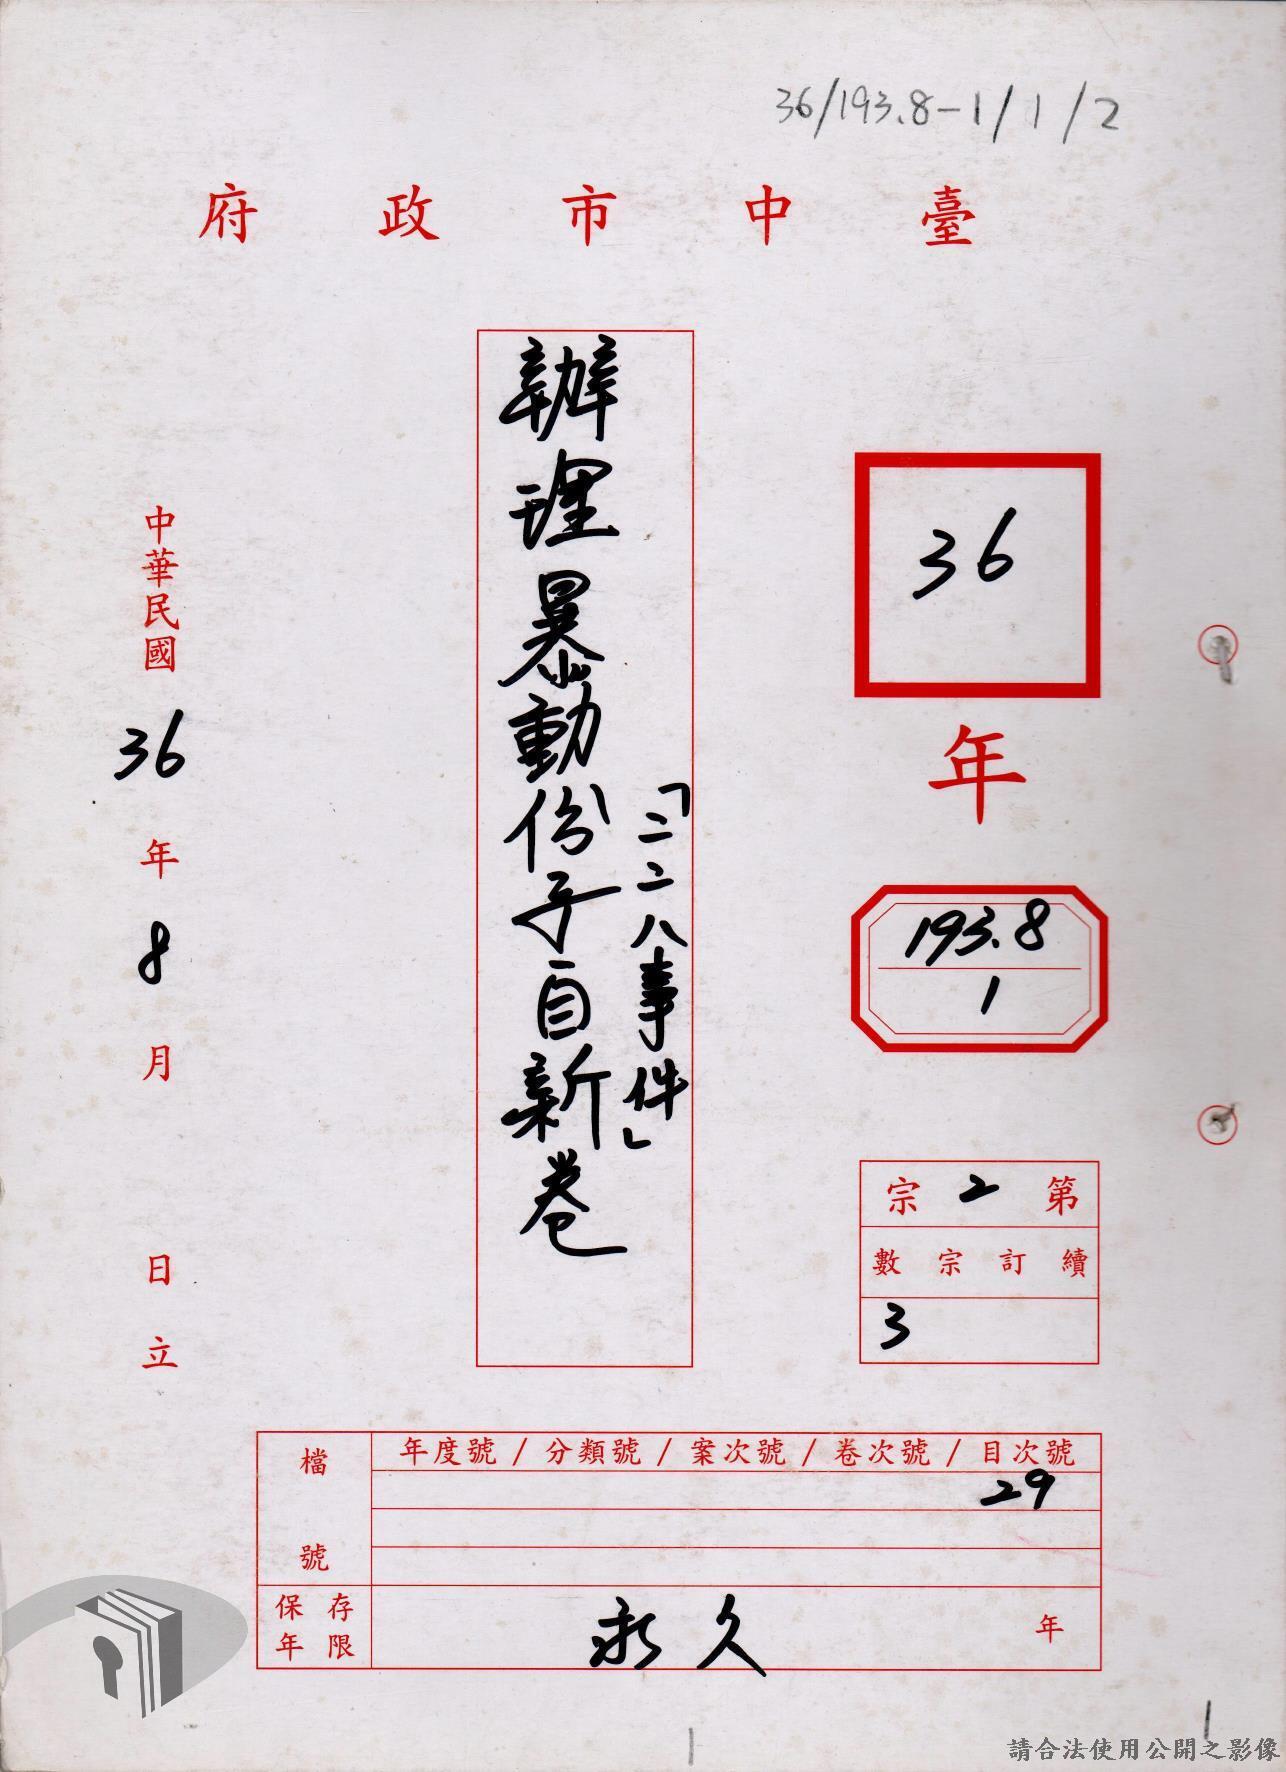 36/193.8-1/1/2
臺中市政府
36
年
193.8
1
第2宗
續訂宗數
3
「二二八事件」
辦理暴動份子自新卷
中華民國36年8月 日立
檔號
年度號/分類號/案次號/卷次號/目次號
29
保存年限
永久 年
1
1
請合法使用公開之影像